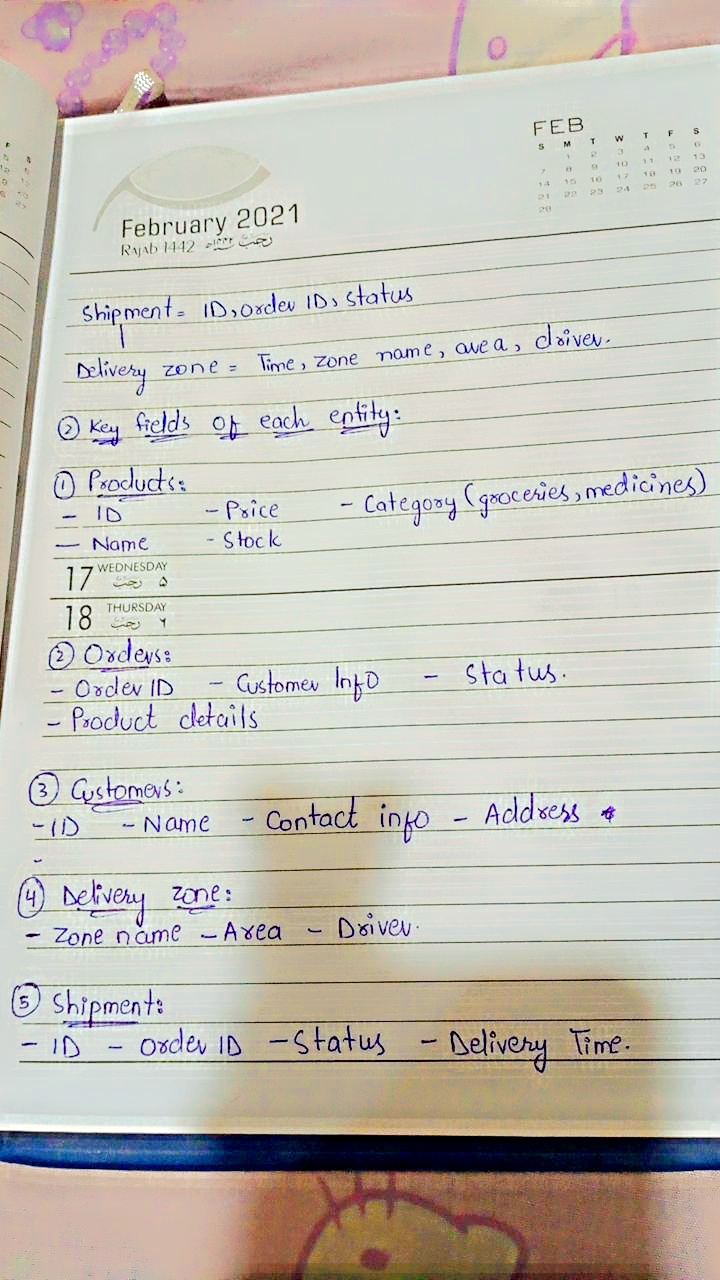 FEB
S M T W T F S
1 2 3 4 5 6
7 8 9 10 11 12 13
14 15 16 17 18 19 20
21 22 23 24 25 26 27
28
February 2021
Rajab 1442
Shipment = ID, order ID, Status
Delivery zone = Time, zone name, area, driver.
② Key fields of each entity:
① Products:
- ID - Price - Category (groceries, medicines)
- Name - Stock
17 WEDNESDAY
۵ رجب
18 THURSDAY
۶ رجب
② Orders:
- Order ID - Customer Info - Status.
- Product details
③ Customers:
- ID - Name - Contact info - Address
-
④ Delivery zone:
- Zone name - Area - Driver.
⑤ Shipment:
- ID - Order ID - Status - Delivery Time.